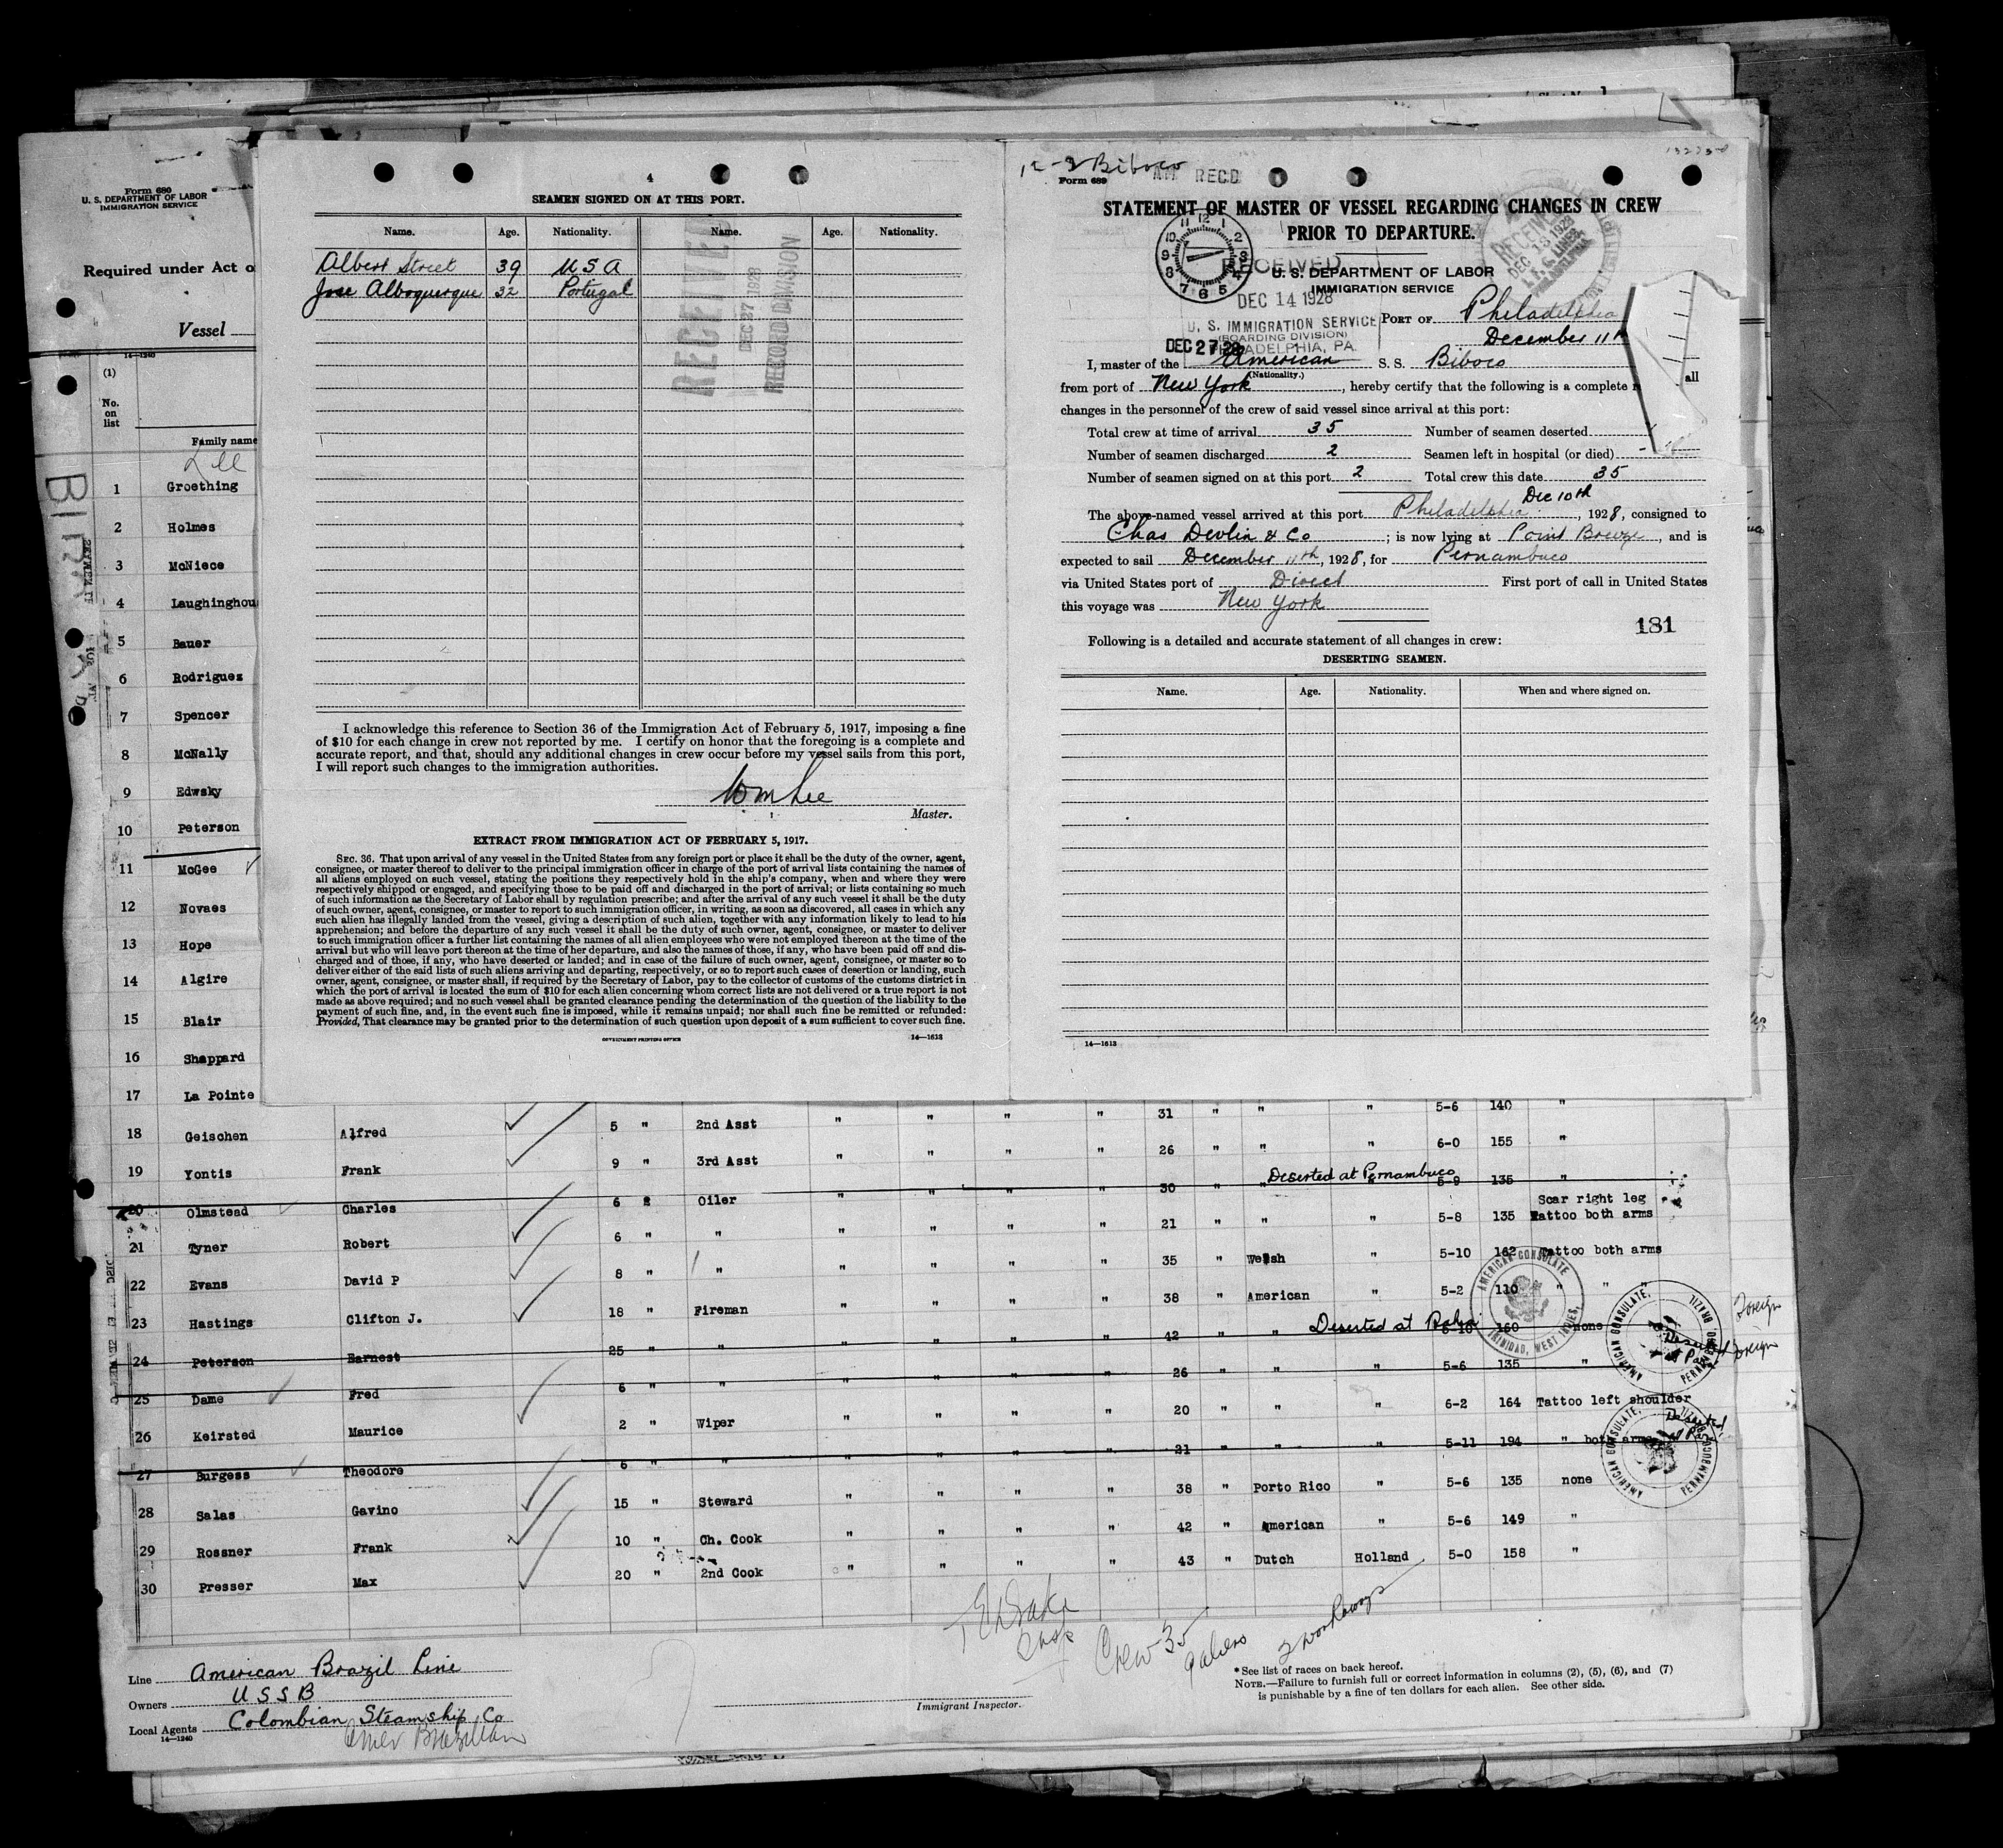 Form 680
U. S. DEPARTMENT OF LABOR
IMMIGRATION SERVICE
Required under Act o
Vessel
14—1240
(1)
No.
on
list
Family name
Lee
1 Groething
2 Holmes
3 McNiece
4 Laughinghou
5 Bauer
6 Rodriguez
7 Spencer
8 McNally
9 Edwsky
10 Peterson
11 McGee
12 Novaes
13 Hope
14 Algire
15 Blair
16 Shappard
17 La Pointe
4
SEAMEN SIGNED ON AT THIS PORT.
Name. Age. Nationality. Name. Age. Nationality.
Albert Street 39 U S A
Jose Alboquerque 32 Portugal
RECEIVED
DEC 27 1928
RECORD DIVISION
I acknowledge this reference to Section 36 of the Immigration Act of February 5, 1917, imposing a fine
of $10 for each change in crew not reported by me. I certify on honor that the foregoing is a complete and
accurate report, and that, should any additional changes in crew occur before my vessel sails from this port,
I will report such changes to the immigration authorities.
Wm Lee
Master.
EXTRACT FROM IMMIGRATION ACT OF FEBRUARY 5, 1917.
SEC. 36. That upon arrival of any vessel in the United States from any foreign port or place it shall be the duty of the owner, agent,
consignee, or master thereof to deliver to the principal immigration officer in charge of the port of arrival lists containing the names of
all aliens employed on such vessel, stating the positions they respectively hold in the ship's company, when and where they were
respectively shipped or engaged, and specifying those to be paid off and discharged in the port of arrival; or lists containing so much
of such information as the Secretary of Labor shall by regulation prescribe; and after the arrival of any such vessel it shall be the duty
of such owner, agent, consignee, or master to report to such immigration officer, in writing, as soon as discovered, all cases in which any
such alien has illegally landed from the vessel, giving a description of such alien, together with any information likely to lead to his
apprehension; and before the departure of any such vessel it shall be the duty of such owner, agent, consignee, or master to deliver
to such immigration officer a further list containing the names of all alien employees who were not employed thereon at the time of the
arrival but who will leave port thereon at the time of her departure, and also the names of those, if any, who have been paid off and dis-
charged and of those, if any, who have deserted or landed; and in case of the failure of such owner, agent, consignee, or master so to
deliver either of the said lists of such aliens arriving and departing, respectively, or so to report such cases of desertion or landing, such
owner, agent, consignee, or master shall, if required by the Secretary of Labor, pay to the collector of customs of the customs district in
which the port of arrival is located the sum of $10 for each alien concerning whom correct lists are not delivered or a true report is not
made as above required; and no such vessel shall be granted clearance pending the determination of the question of the liability to the
payment of such fine, and, in the event such fine is imposed, while it remains unpaid; nor shall such fine be remitted or refunded:
Provided, That clearance may be granted prior to the determination of such question upon deposit of a sum sufficient to cover such fine.
GOVERNMENT PRINTING OFFICE 14—1613
12-3 Biboco
Form 689
AM RECD
STATEMENT OF MASTER OF VESSEL REGARDING CHANGES IN CREW
PRIOR TO DEPARTURE.
RECEIVED
U. S. DEPARTMENT OF LABOR
IMMIGRATION SERVICE
DEC 14 1928
U. S. IMMIGRATION SERVICE
(BOARDING DIVISION)
PHILADELPHIA, PA.
DEC 27 28
RECEIVED
DEC 13 1928
PORT OF Philadelphia
December 11th
I, master of the American S. S. Biboco
(Nationality.)
from port of New York, hereby certify that the following is a complete all
changes in the personnel of the crew of said vessel since arrival at this port:
Total crew at time of arrival 35 Number of seamen deserted
Number of seamen discharged 2 Seamen left in hospital (or died) -
Number of seamen signed on at this port 2 Total crew this date 35
Dec 10th
The above-named vessel arrived at this port Philadelphia, 1928, consigned to
Chas Devlin & Co; is now lying at Point Breeze, and is
expected to sail December 11th, 1928, for Pernambuco
via United States port of Direct First port of call in United States
this voyage was New York
181
Following is a detailed and accurate statement of all changes in crew:
DESERTING SEAMEN.
Name. Age. Nationality. When and where signed on.
14—1613
" " " " 31 " " " 5-6 140 "
18 Geischen Alfred 5 " 2nd Asst " " " " 26 " " " 6-0 155 "
19 Yontis Frank 9 " 3rd Asst " " " " 30 " " Deserted at Pernambuco " 5-9 135 "
20 Olmstead Charles 6 " Oiler " " " " 21 " " " 5-8 135 Scar right leg
Tattoo both arms
21 Tyner Robert 6 " " " " " " 35 " Welsh " 5-10 162 Tattoo both arms
22 Evans David P 8 " " " " " " 38 " American " 5-2 110 " " "
23 Hastings Clifton J. 18 " Fireman " " " " 42 " " Deserted at Bahia 5-10 160 none
24 Peterson Earnest 25 " " " " " " 26 " " " 5-6 135 "
25 Dame Fred 6 " " " " " " 20 " " " 6-2 164 Tattoo left shoulder
26 Keirsted Maurice 2 " Wiper " " " " 21 " " " 5-11 194 " both arms
27 Burgess Theodore 6 " " " " " " 38 " Porto Rico " 5-6 135 none
28 Salas Gavino 15 " Steward " " " " 42 " American " 5-6 149 "
29 Rossner Frank 10 " Ch. Cook " " " " 43 " Dutch Holland 5-0 158 "
30 Presser Max 20 " 2nd Cook "
AMERICAN CONSULATE
TRINIDAD, WEST INDIES,
AMERICAN CONSULATE,
PERNAMBUCO, BRAZIL
Foreign
Foreign
AMERICAN CONSULATE,
PERNAMBUCO, BRAZIL
Deserted
Crew 35
9 aliens
2 workaways
Line American Brazil Line
Owners U S S B
Local Agents Colombian Steamship Co
14—1240
Amer Brazilian
Immigrant Inspector.
* See list of races on back hereof.
NOTE.—Failure to furnish full or correct information in columns (2), (5), (6), and (7)
is punishable by a fine of ten dollars for each alien. See other side.